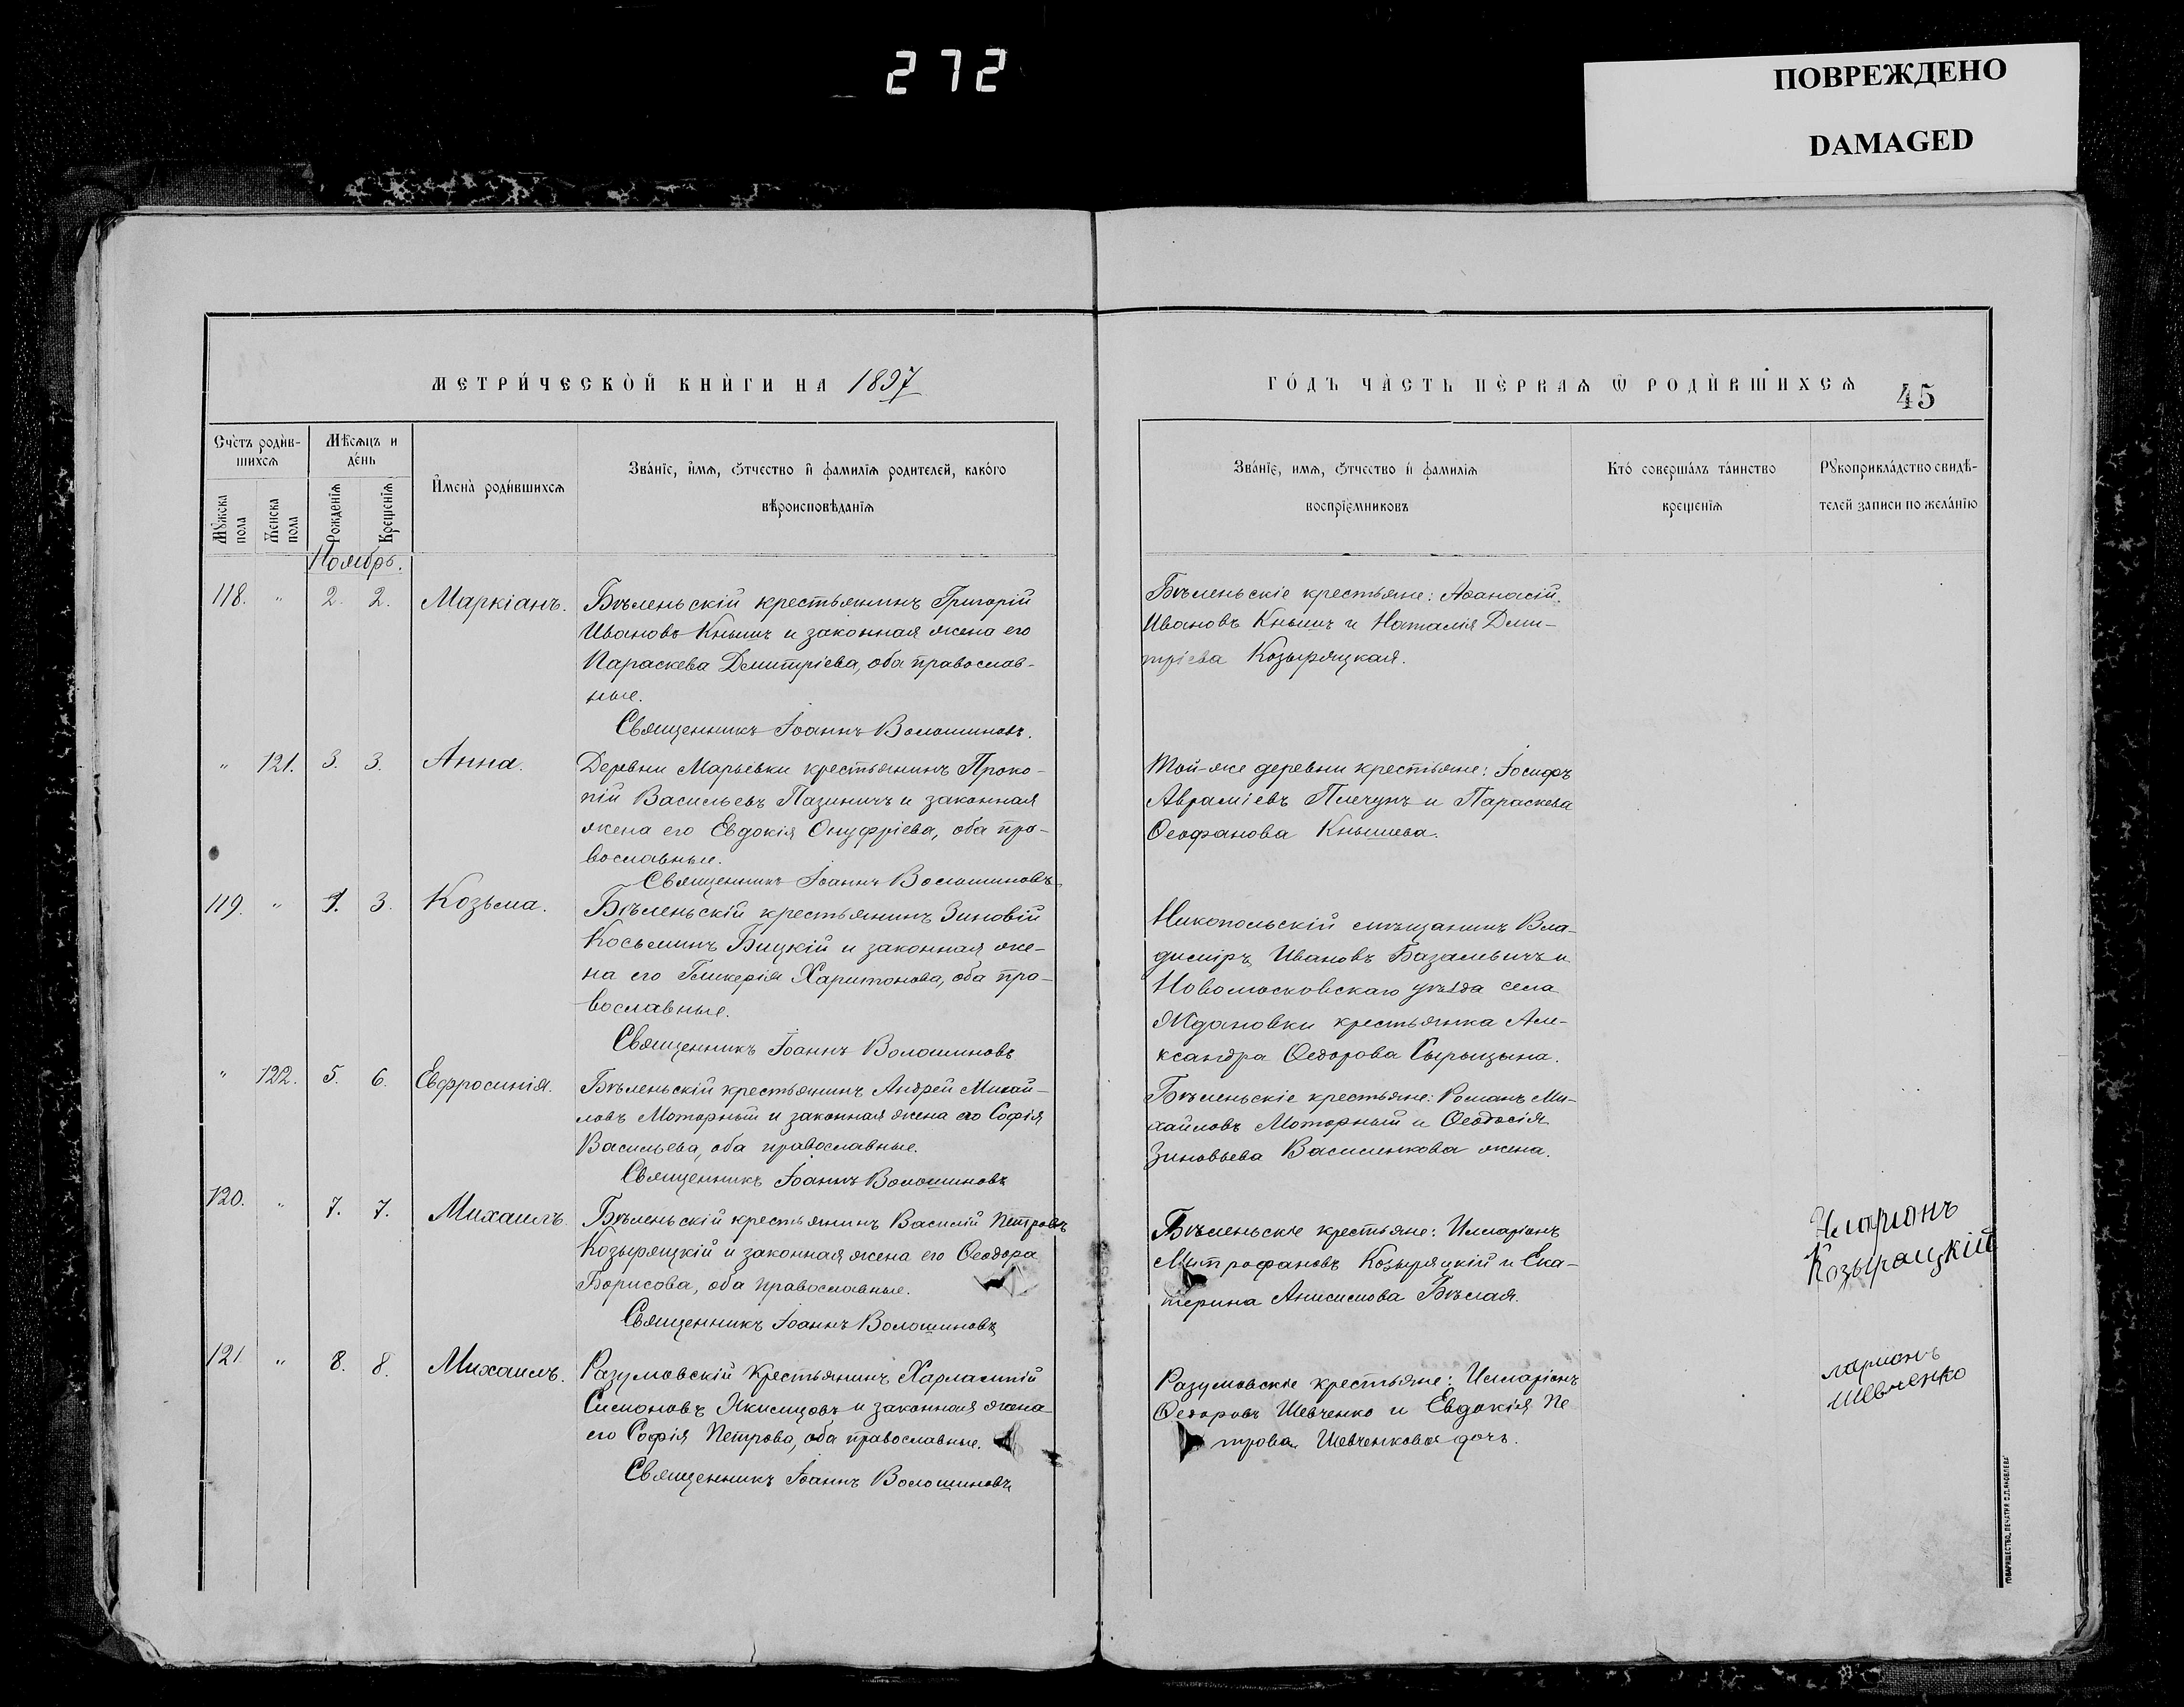 272
ПОВРЕЖДЕНО
DAMAGED
МЕТРИ́ЧЕСКОЙ КНИ́ГИ НА 1897
ГО́ДЪ ЧА́СТЬ ПЕ́РВАѦ Ѿ РОДИ́ВШИХСѦ
45
Сче́тъ роди́в-
шихсѧ
Мѣ́сѧцъ и
де́нь
Имена̀ роди́вшихсѧ
Зва́нїе, и́мѧ, ѻ́тчество и҆ фамилїѧ родителей, како́го
вѣроисповѣданїѧ
Мꙋ́жска
пола
Же́нска
пола
Рожденїѧ
Крещенїѧ
Зва́нїе, имѧ, ѻ́тчество и҆ фамилїѧ
воспрїемниковъ
Кто́ соверша́лъ та́инство
крещенїѧ
Рꙋкоприкла́дство свидѣ́-
телей записи по жела́нїю
Ноябрь.
118. " 2. 2. Маркіанъ.
Бѣленьскій крестьянинъ Григорій
Ивановъ Кнышъ и законная жена его
Параскева Димитріева, оба православ-
ные.
Священникъ Іоаннъ Волошиновъ.
Бѣленьскіе крестьяне: Аѳанасій
Ивановъ Кнышъ и Наталія Дми-
тріева Козыряцкая.
" 121. 3. 3. Анна.
Деревни Марьевки крестьянинъ Проко-
пій Васильевъ Пазиничъ и законная
жена его Евдокія Онуфріева, оба пра-
вославные.
Священникъ Іоаннъ Волошиновъ
Той-же деревни крестьяне: Іосифъ
Авраміевъ Плечунъ и Параскева
Ѳеофанова Кнышева.
119. " 1. 3. Козьма.
Бѣленьскій крестьянинъ Зиновій
Косьминъ Бицкій и законная же-
на его Гликерія Харитонова, оба пра-
вославные.
Священникъ Іоаннъ Волошиновъ
Никопольскій мѣщанинъ Вла-
диміръ Ивановъ Базалевичъ и
Новомосковскаго уѣзда села
Ждановки крестьянка Але-
ксандра Ѳедорова Сырыцына.
" 122. 5. 6. Евфросинія.
Бѣленьскій крестьянинъ Андрей Михай-
ловъ Моторный и законная жена его Софія
Васильева, оба православные.
Священникъ Іоаннъ Волошиновъ
Бѣленьскіе крестьяне: Романъ Ми-
хайловъ Моторный и Ѳеодосія
Зиновьева Василенкова жена.
120. " 7. 7. Михаилъ.
Бѣленьскій крестьянинъ Василій Петровъ
Козыряцкій и законная жена его Ѳеодора
Борисова, оба православные.
Священникъ Іоаннъ Волошиновъ
Бѣленьскіе крестьяне: Илларіонъ
Митрофановъ Козыряцкій и Ека-
терина Анисимова Бѣлая.
Иларионъ
Козырацкій
121. " 8. 8. Михаилъ.
Разумовскій крестьянинъ Харлампій
Симоновъ Якимцовъ и законная жена
его Софія Петрова, оба православные.
Священникъ Іоаннъ Волошиновъ
Разумовскіе крестьяне: Илларіонъ
Ѳедоровъ Шевченко и Евдокія Пе
трова Шевченкова дочь.
ларионъ
Шевченко
ТОВАРИЩЕСТВО „ПЕЧАТНЯ С.П. ЯКОВЛЕВА"